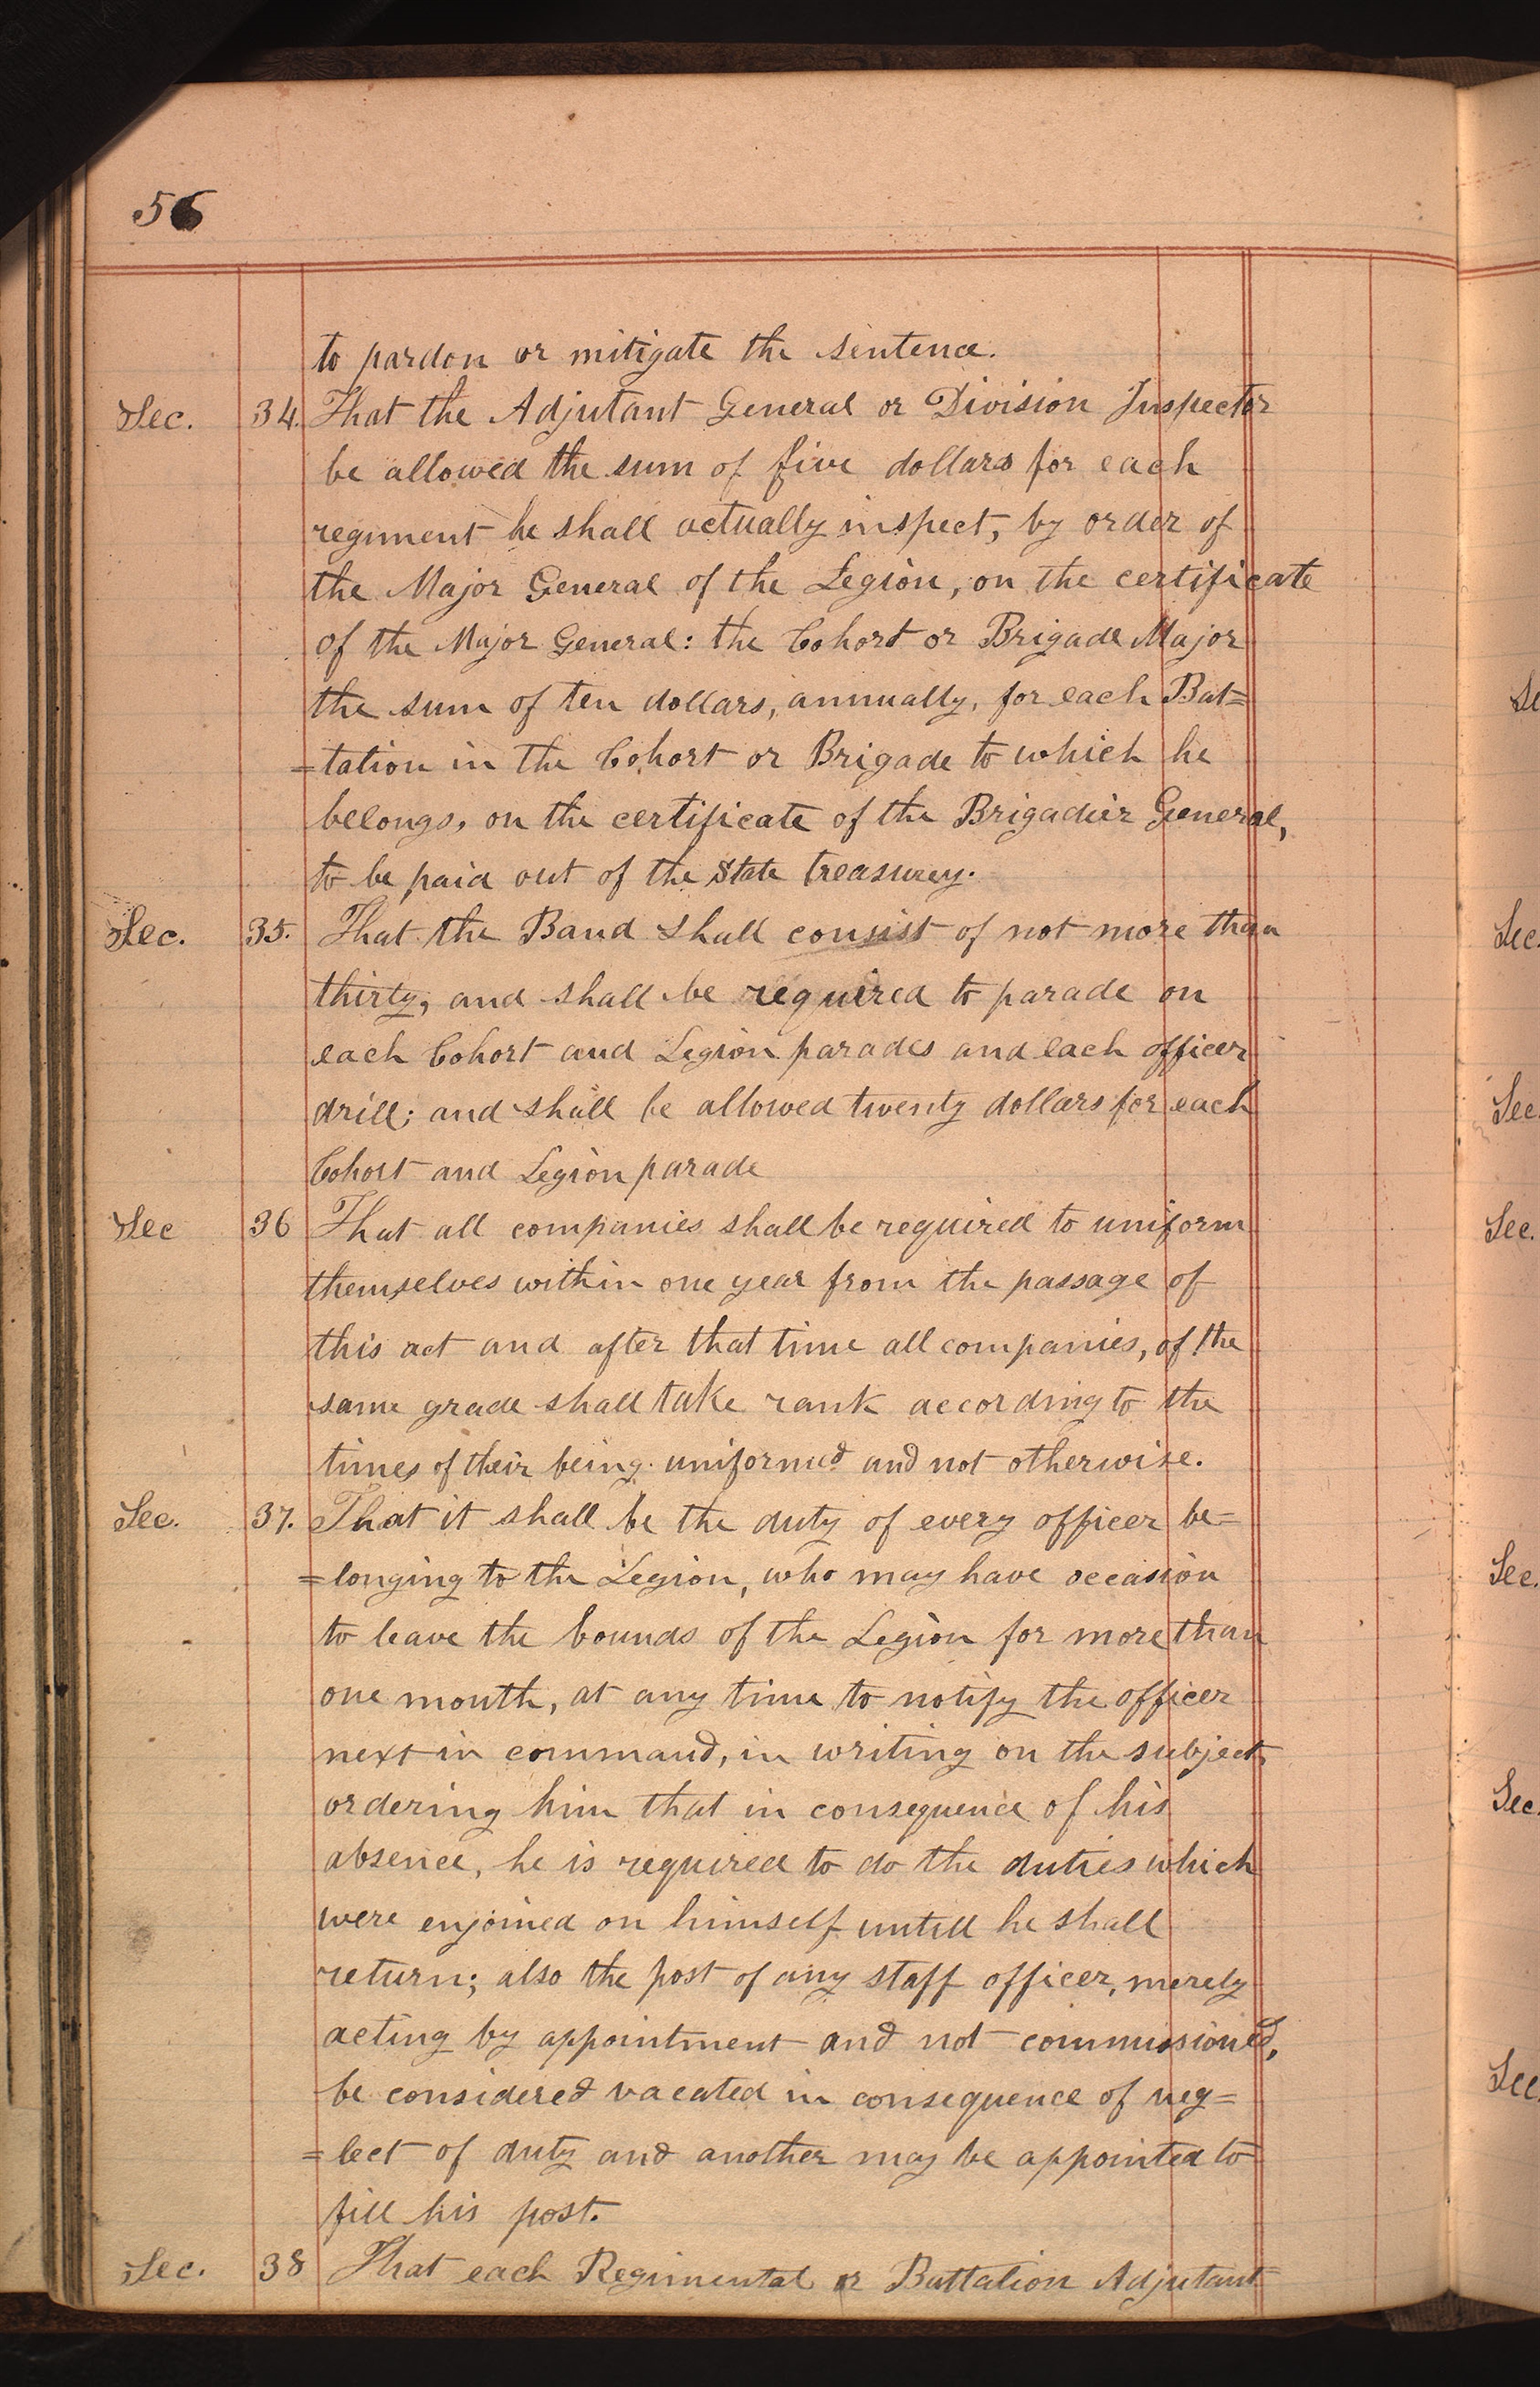 56
to pardon or mitigate the sentence.
Sec. 34. That the Adjutant General or Division Inspector
be allowed the sum of five dollars for each
regiment he shall actually inspect, by order of
the Major General of the Legion, on the certificate
of the Major General: the Cohort or Brigade Major
the sum of ten dollars, annually, for each Bat=
=tation in the Cohort or Brigade to which he
belongs, on the certificate of the Brigadier General,
to be paid out of the State treasurey.
Sec. 35. That the Band shall consist of not more than
thirty, and shall be required to parade on
each Cohort and Legion parades and each officer
drill; and shall be allowed twenty dollars for each
Cohort and Legion parade
Sec 36 That all companies shall be required to uniform
themselves within one year from the passage of
this act and after that time all companies, of the
same grade shall take rank according to the
times of their being uniformed and not otherwise.
Sec. 37. That it shall be the duty of every officer be=
=longing to the Legion, who may have occasion
to leave the bounds of the Legion for more than
one month, at any time to notify the officer
next in command, in writing on the subject,
ordering him that in consequence of his
absence, he is required to do the duties which
were enjoined on himself untill he shall
return; also the post of any staff officer, merely
acting by appointment and not commissioned,
be considered vacated in consequence of neg=
=lect of duty and another may be appointed to
fill his post.
Sec. 38 That each Regimental or Battalion Adjutant
Sec.
Sec.
Sec.
Sec.
Sec.